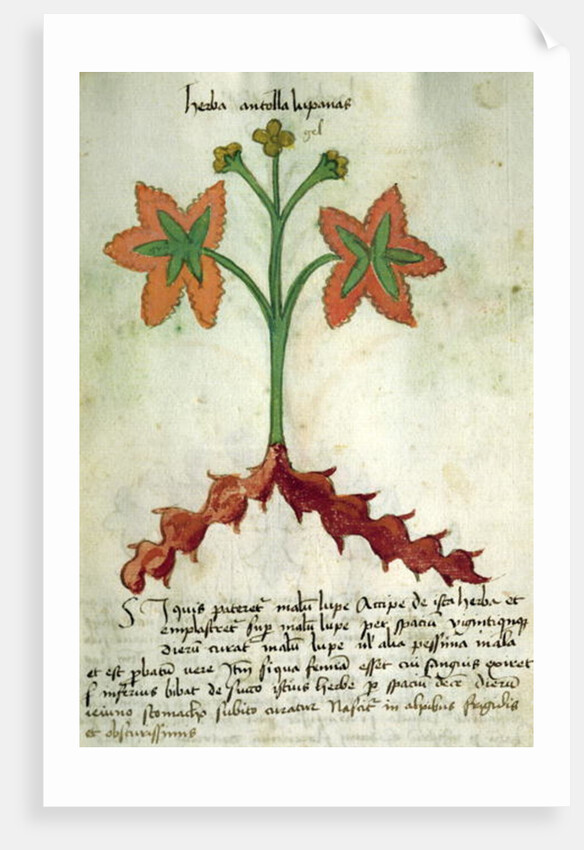 herba antolla lupanas
gel
Si quis pateret᷑ malū lupe Accipe de ista herba et
emplastret᷑ sup malū lupe pet spaciū viginti
dierū curat malū lupe ul' alia pessima mala
et est ꝓbatū vere Itm̄ si qua femīa esset cui sanguis exiret
inferius bibat de succo istius herbe ꝑ spaciū decē dierū
ieiuno stomacho subito curatur Nascit᷑ in alpibus frigidis
et obscurissimis